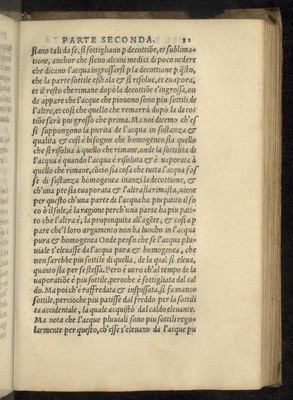 PARTE SECONDA. 31
siano tali da se, si sottigliano p decottiõe, et sublima-
tione, anchor che sieno alcuni medici di poco vedere
che dicano l'acqua ingrossarsi p la decottione p q̃sto,
che la parte sottile eshala & si risolue, et euapora,
et il resto che rimane dopò la decottiõe s'ingrossa, on
de appare che l'acque che piouono sono piu sottili de
l'altre, et così che quello che remarrà dopò la decot
tiõe serà piu grosso che prima. Ma noi dicemo ch'es
si suppongono la purità de l'acqua in sustanza &
qualità & così è bisogno che homogeneo sia quello
che si risolue à quello che rimane, onde la sottilità de
l'acqua è quando l'acqua è risoluta & è uaporata à
quello che rimane, cõ tutto sia cosa che tutta l'acqua fos
se di sustanza homogenea inanzi la decottione, &
ch'una pte sia euaporata & l'altra sia rimasta, uiene
per questo ch'una parte de l'acqua ha piu patito il fo
co ò il sole, è la ragione perch'una parte ha piu pati-
to che l'altra è, la propinquità all'agẽte, & così ap
pare che'l loro argumento non ha luocho in l'acqua
pura & homogenea Onde penso che se l'acqua plu-
uiale s'eleuasse da l'acqua pura & homogenea, che
non sarebbe piu sottile di quella, de la qual si eleua,
quanto sia per se stessa. Però è uero ch'al tempo de la
uaporatiõe è piu sottile, peroche è sottigliata dal cal
do. Ma poi ch'è raffredata & inspissata, si fa manco
sottile, percioche piu patisse dal freddo per la sottili
tà accidentale, la quale acquistò dal caldo eleuante.
Ma nota che l'acque pluuiali sono piu sottili rego-
larmente per questo, ch'esse s'eleuano da l'acque pu